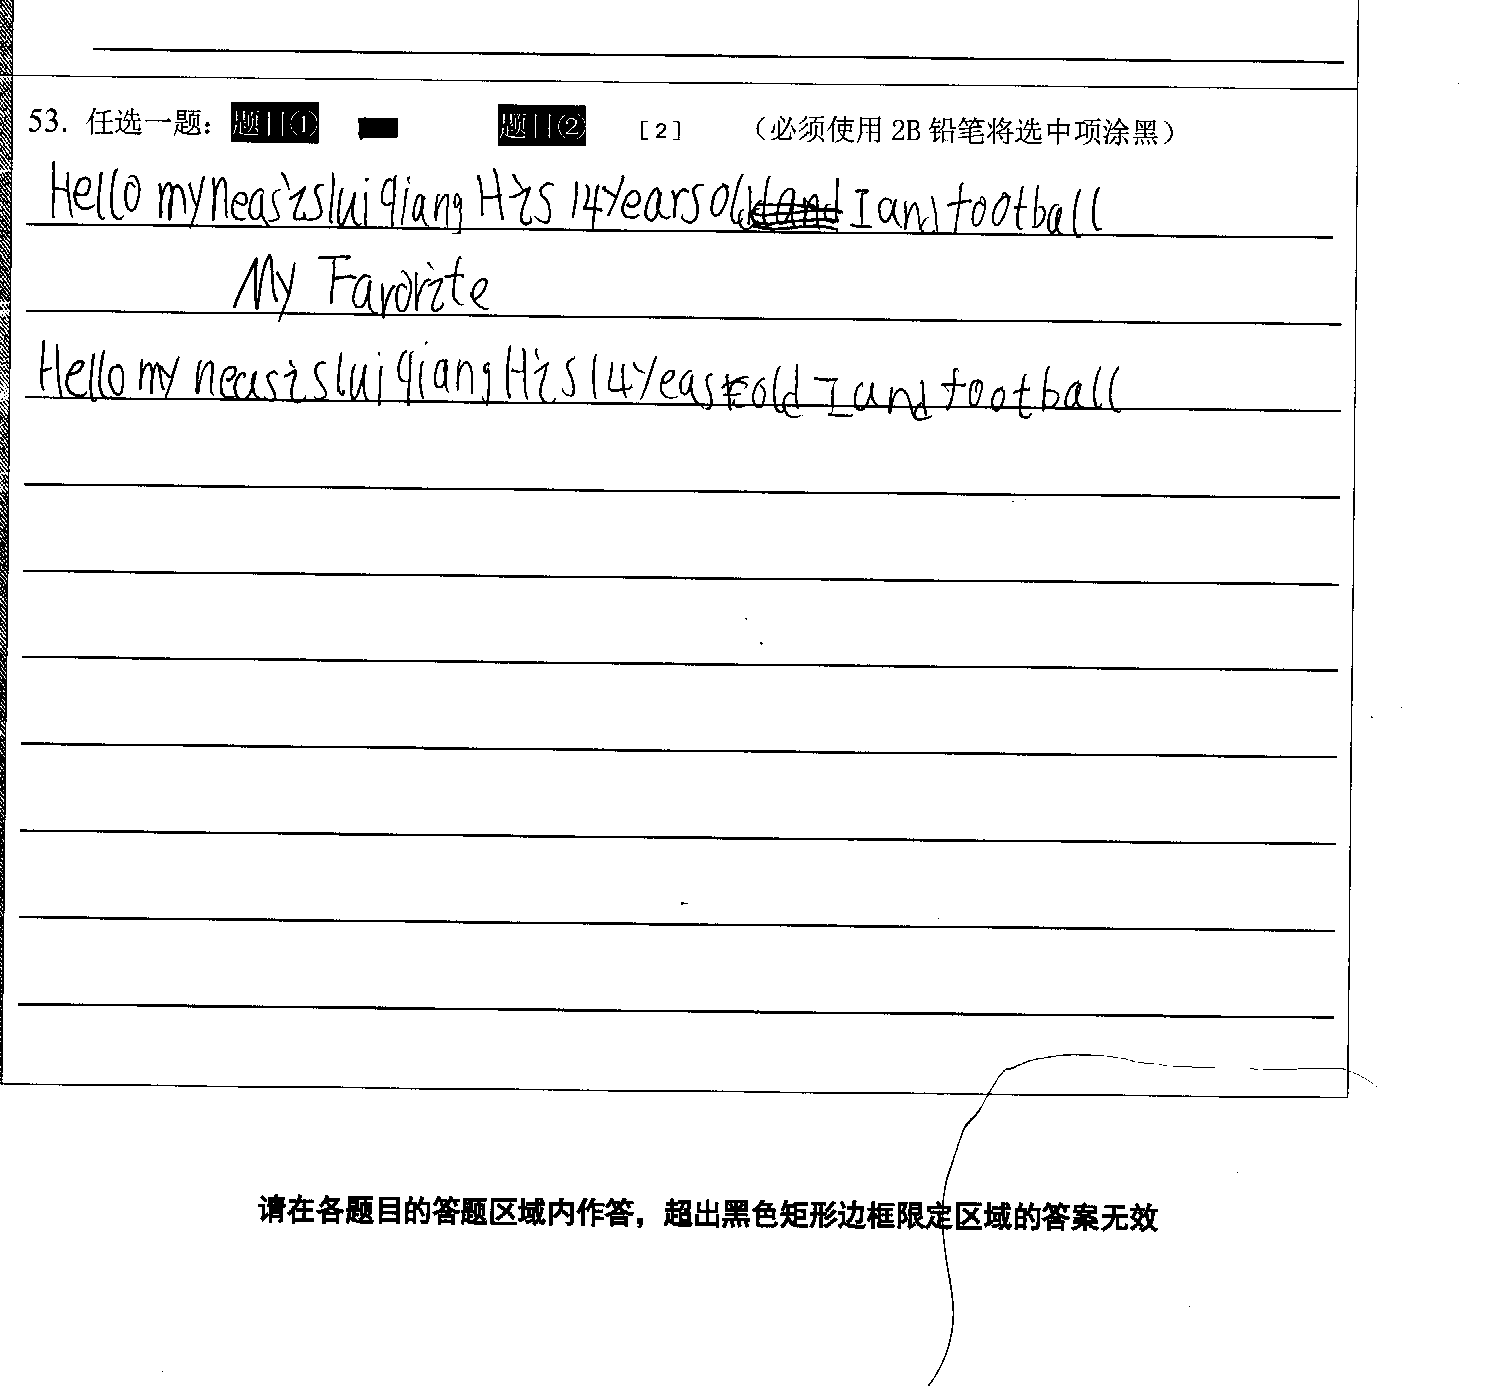 53. 任选一题： 题目① 题目② [2] （必须使用 2B 铅笔将选中项涂黑）
Hello my neas is lui qiang His 14 Years old I and football
My Favorite
Hello my neas is lui qiang His 14 Yeas old I and football
请在各题目的答题区域内作答，超出黑色矩形边框限定区域的答案无效